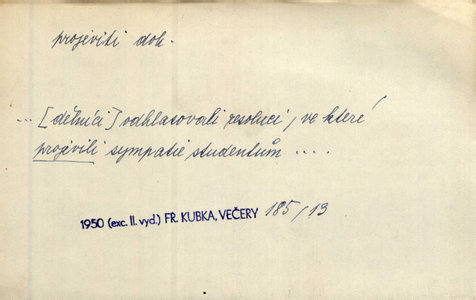 projeviti dok.
... [dělníci] odhlasovali resoluci, ve které
projevili sympatie studentům ....
1950 (exc. II. vyd.) FR. KUBKA, VEČERY 185/13